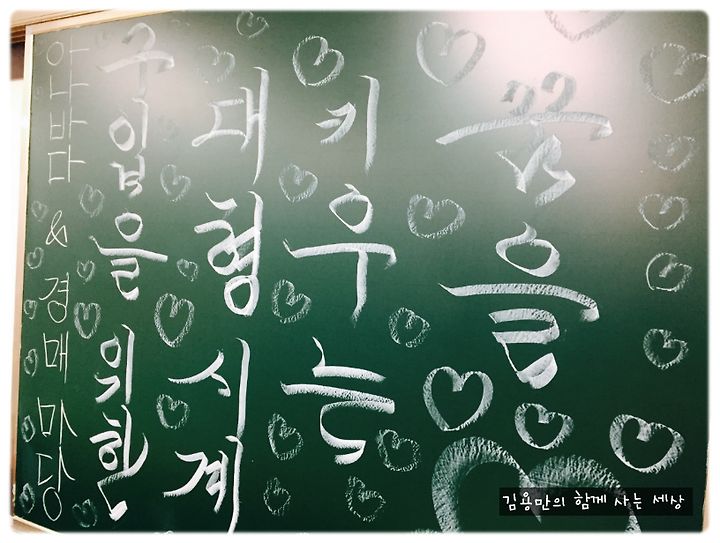 꿈을
키우는
대형시계
구입을 위한
알밤 & 경매마당
김용만의 함께 사는 세상